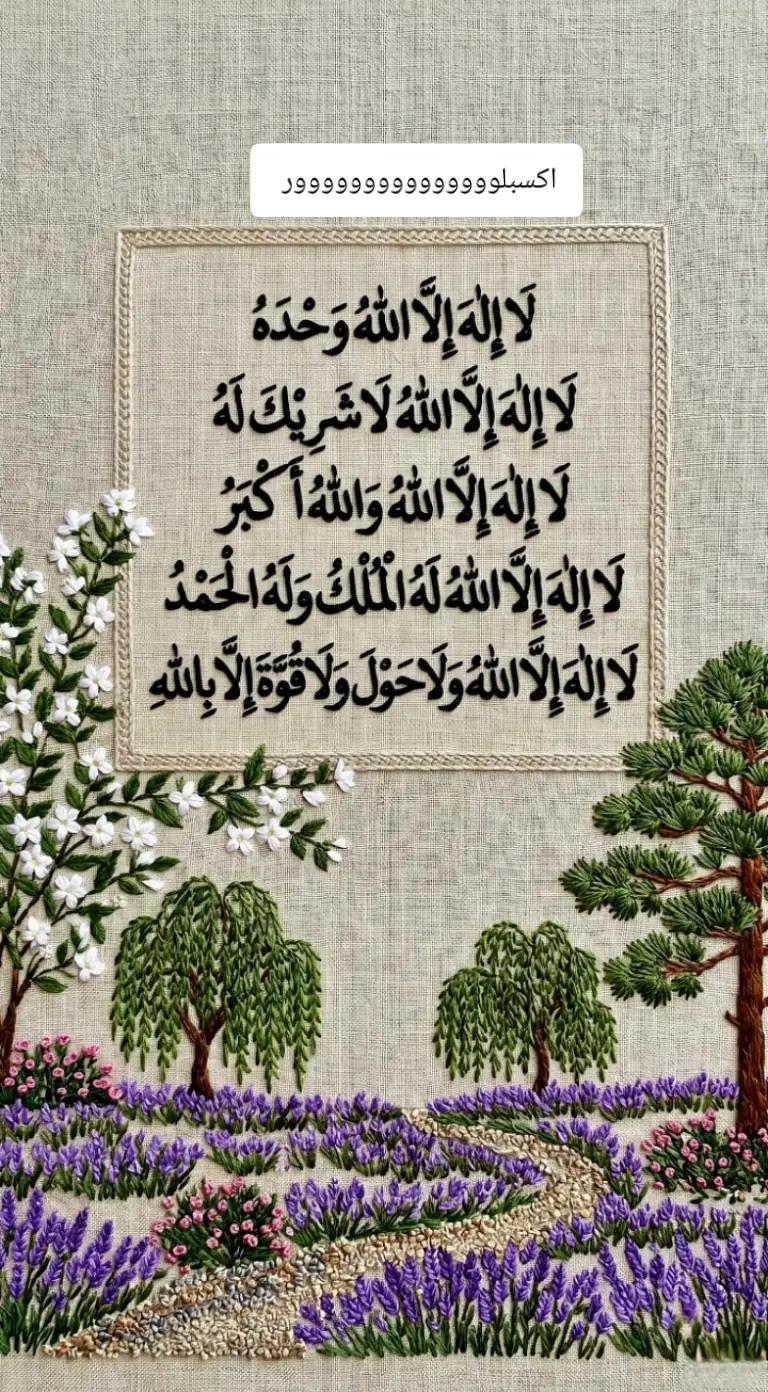 اكسبلوووووووووووووور
لَا إِلٰهَ إِلَّا اللهُ وَحْدَهُ
لَا إِلٰهَ إِلَّا اللهُ لَا شَرِيْكَ لَهُ
لَا إِلٰهَ إِلَّا اللهُ وَاللهُ أَكْبَرُ
لَا إِلٰهَ إِلَّا اللهُ لَهُ الْمُلْكُ وَلَهُ الْحَمْدُ
لَا إِلٰهَ إِلَّا اللهُ وَلَا حَوْلَ وَلَا قُوَّةَ إِلَّا بِاللهِ